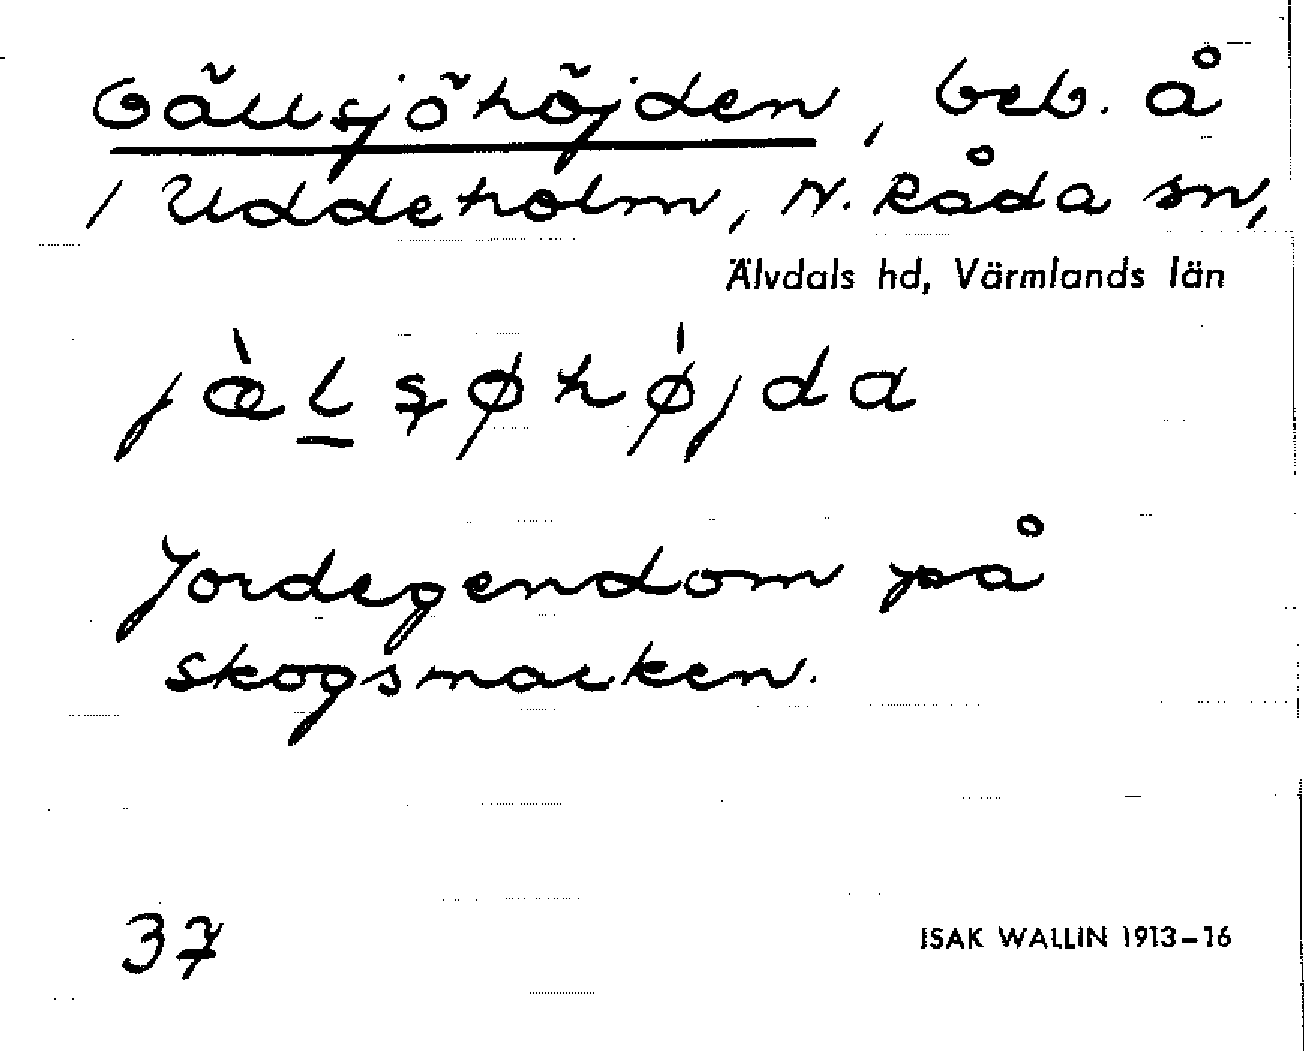 Gällsjöhöjden, beb. å
/ Uddeholm, N. Råda sn,
Älvdals hd, Värmlands län
jæ̀l̠ʂøhǿjda
Jordegendom på
skogsmarken.
37
ISAK WALLIN 1913–16